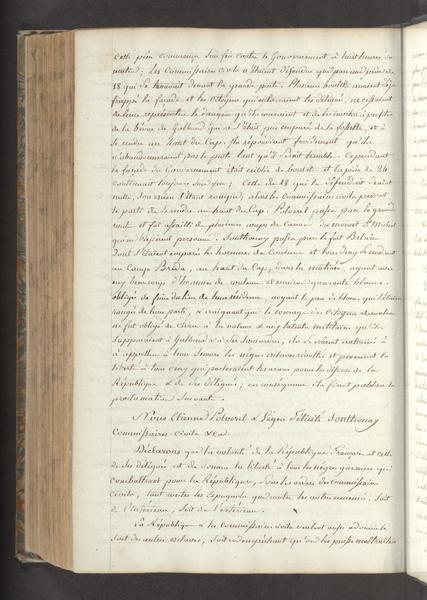 Cette pièce commença son feu contre le Gouvernement à huit heures du
matin; Les Commissaires civils n'étaient défendus que par une pièce de
18 qui se trouvait devant la grande porte. Plusieurs boulets avaient déjà
frappé la façade et les Citoyens qui entouraient les délégués, ne cessaient
de leur représenter le danger qu'ils couraient et de les inviter à profiter
de la bévue de Galbaud qui ne s'était pas emparé de la fossette, et à
se rendre au haut du Cap. Ils répondirent froidement qu'ils
n'abandonneraient pas le poste tant qu'il serait tenable. Cependant
la façade du Gouvernement était criblée de boulets et la pièce de 24
continuait toujours son feu; Celle de 18 qui le défendait devint
nulle, son essieu s'étant rompu; alors les Commissaires civils prirent
le parti de se rendre au haut du Cap. Polverel passa par la grande
route et fut assailli de plusieurs coups de canon du
qui ne blessèrent personne. Southonay passa par le fort Belair
dont s'étaient emparés les hommes de Couleur et tous deux se rendirent
au Camp Breda, au haut du Cap, dans la matinée, ayant avec
eux beaucoup d'hommes de couleur et environ quarante blancs.
obligés de faire
rangés de leur parti, & craignant que le courage des Citoyens de couleur
ne fut obligé de céder à la valeur & aux talents militaires qu'ils
supposaient à Galbaud & à ses
à appeller à leur secours les nègres esclaves révoltés et promirent la
liberté à tous ceux qui porteraient les armes pour la défense de la
République & de ses délégués; en conséquence ils firent publier la
proclamation suivante.
Nous Etienne Polverel & Léger Félicité Sonthonay
Commissaires civils &ca
Déclarons que la volonté de la République Française et celle
de ses délégués est de donner la liberté à tous les nègres guerriers qui
combattront pour la République, sous les ordres des Commissaires
civils, tant contre les Espagnols que contre les autres ennemis, soit
de l'intérieur, soit de l'extérieur.
La République & les Commissaires civils veulent aussi adoucir le
sort des autres esclaves, soit en empêchant qu'on les puisse maltraiter